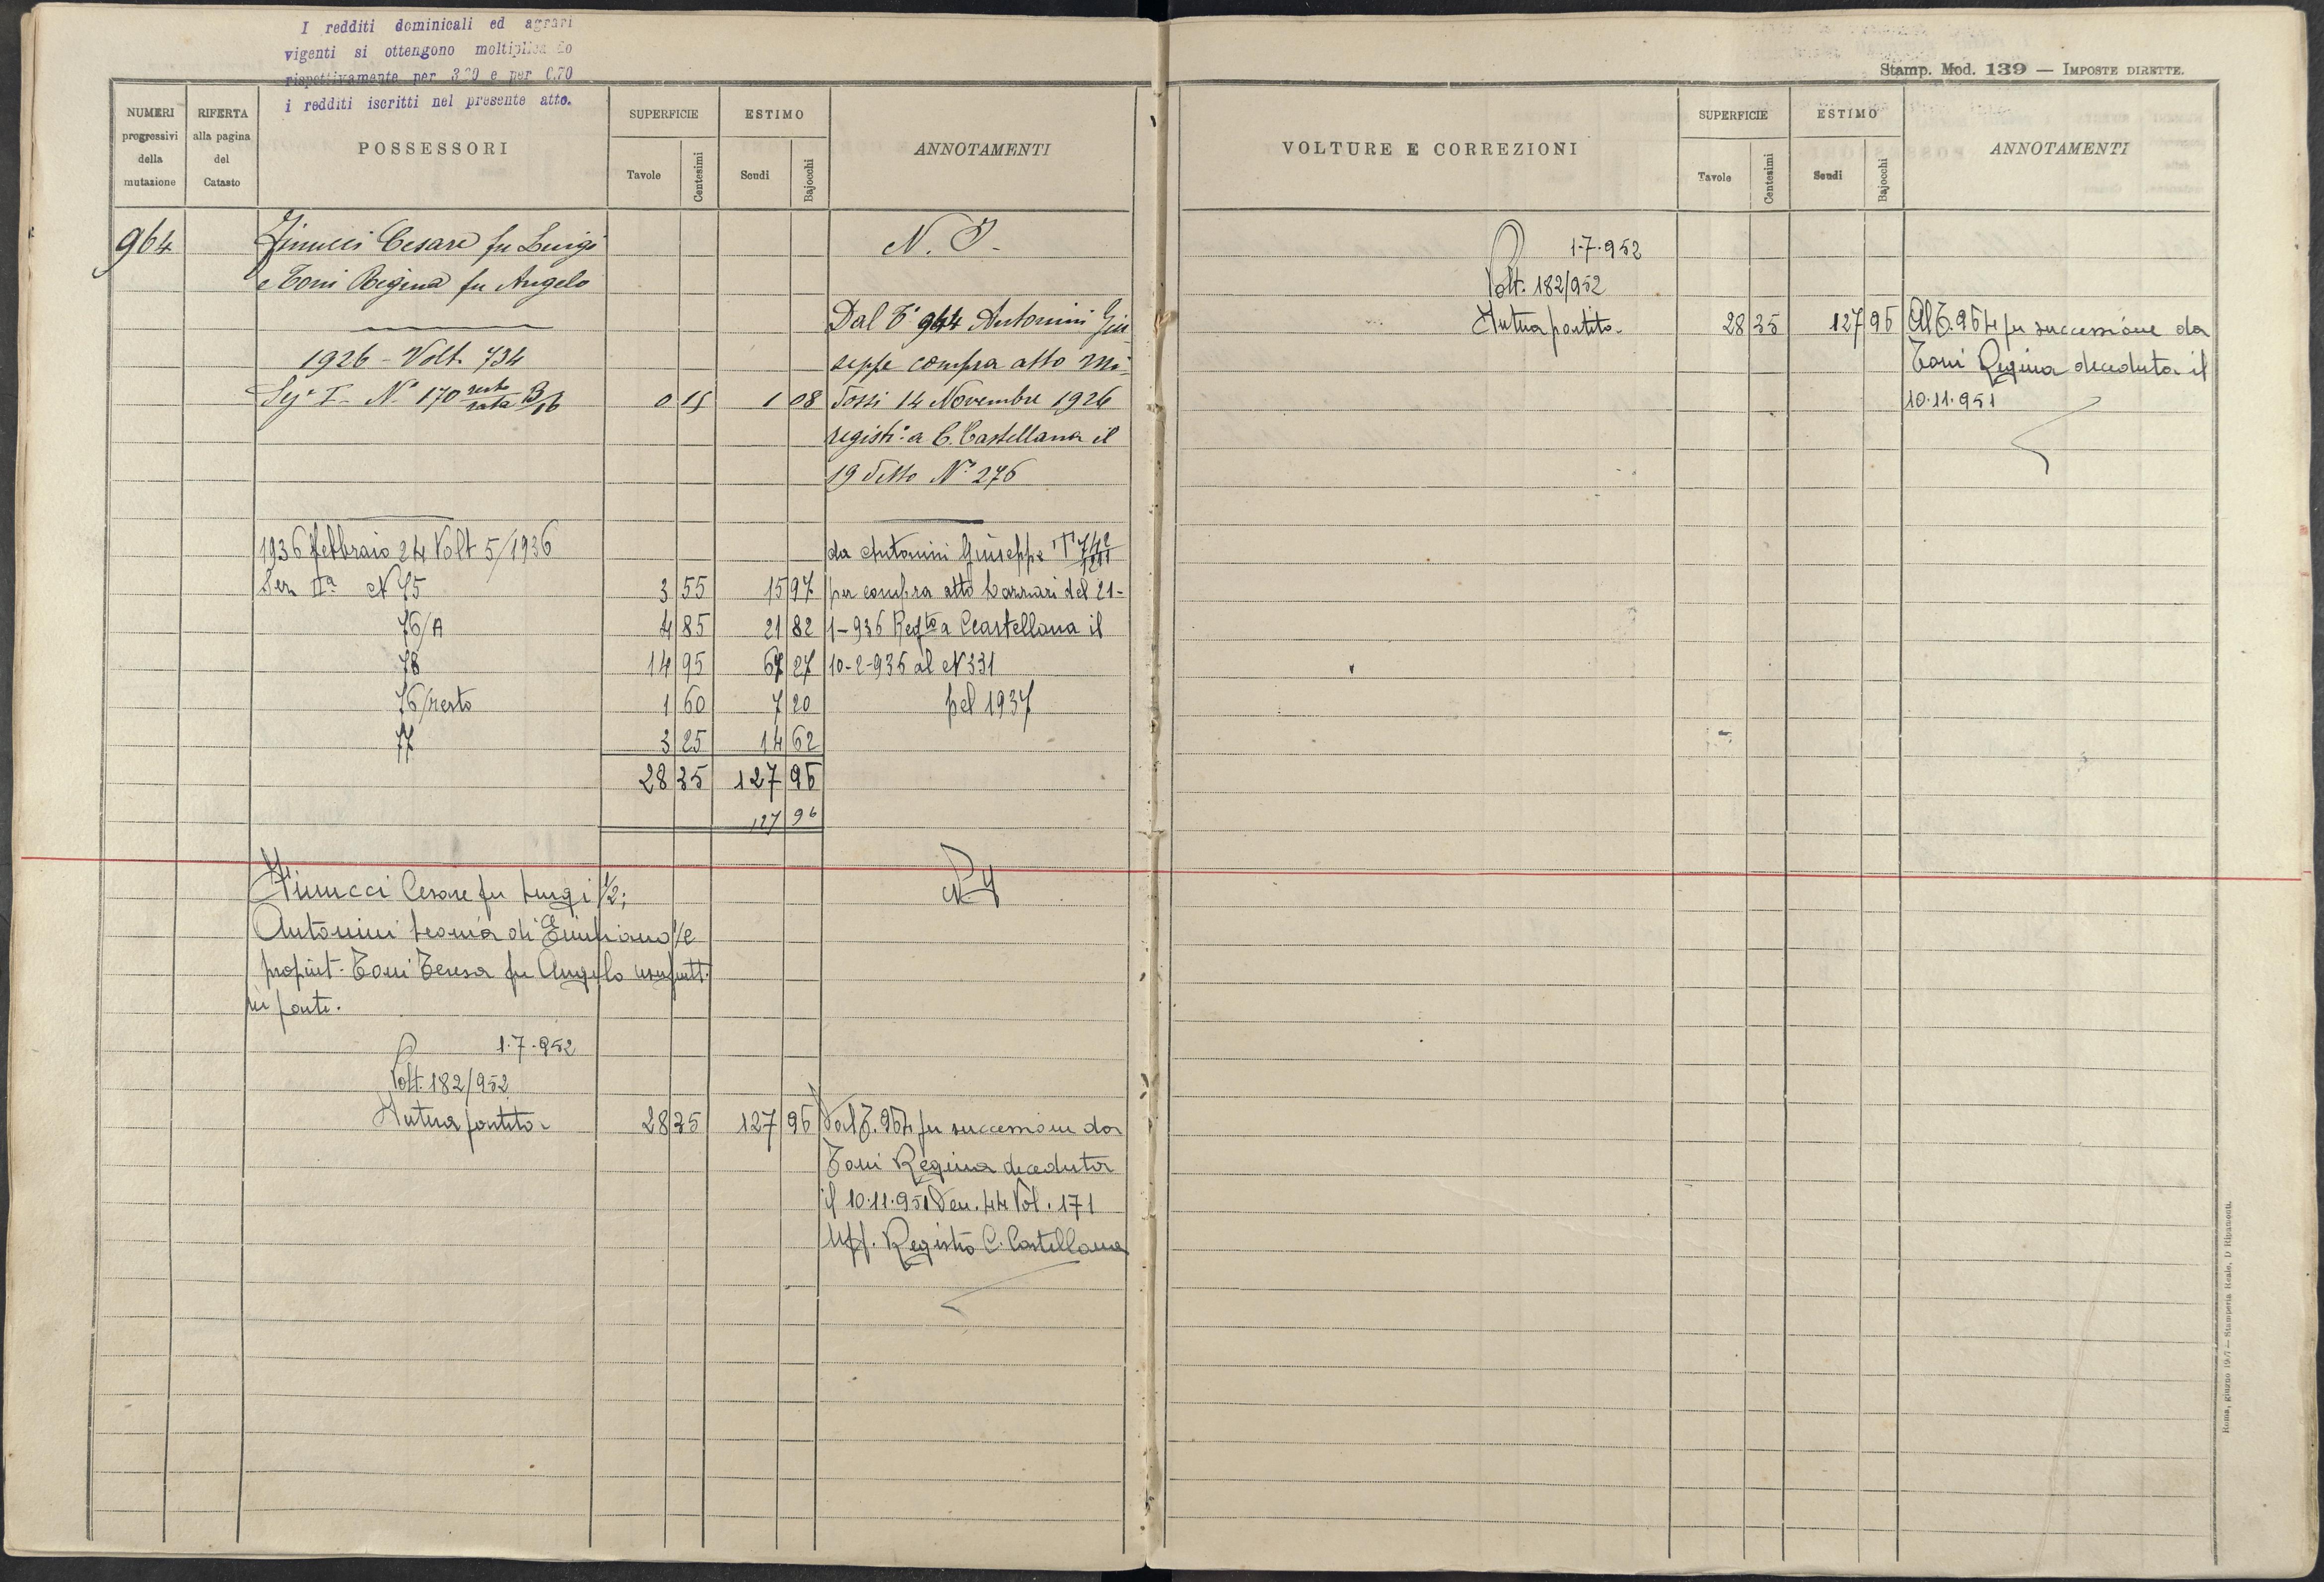 I redditi dominicali ed agrari
vigenti si ottengono moltiplicando
rispettivamente per 3.20 e per 0.70
i redditi iscritti nel presente atto.
NUMERI
progressivi
della
mutazione
RIFERTA
alla pagina
del
Catasto
POSSESSORI
SUPERFICIE
Tavole
Centesimi
ESTIMO
Scudi
Bajocchi
ANNOTAMENTI
964
Finucci Cesare fu Luigi
e Toni Regina fu Angelo
N. I.
1926 - Volt. 734
Sez. I - N. 170 resto rata B/16 0 15 1 08
Dal T. 944 Antonini Giu
seppe compra atto Mi
sossi 14 Novembre 1926
regist. a C. Castellana il
19 detto N. 276
1936 febbraio 24 Volt 5/1936
Sez IIa N 75 3 55 15 97
76/A 4 85 21 82
78 14 95 67 27
76/resto 1 60 7 20
77 3 25 14 62
28 35 127 96
127 96
da Antonini Giuseppe T 742
per compra atto Lazzari del 21-
1-936 Regto a Castellana il
10-2-936 al N 331
pel 1937
Finucci Cesare fu Luigi 1/2;
Antonini Leonia di Emiliano 1/2
propriet. Toni Teresa fu Angelo usufrutt.
in parte.
1.7.952
Volt. 182/952
Intera partita. 28 35 127 96
Dal T. 964 per successione da
Toni Regina deceduta
il 10.11.951 Den. 44 Vol. 171
Uff. Registro C. Castellana
Stamp. Mod. 139 — IMPOSTE DIRETTE.
VOLTURE E CORREZIONI
SUPERFICIE
Tavole
Centesimi
ESTIMO
Scudi
Bajocchi
ANNOTAMENTI
1.7.952
Volt. 182/952
Intera partita. 28 35 127 96
Al T. 964 per successione da
Toni Regina deceduta il
10.11.951